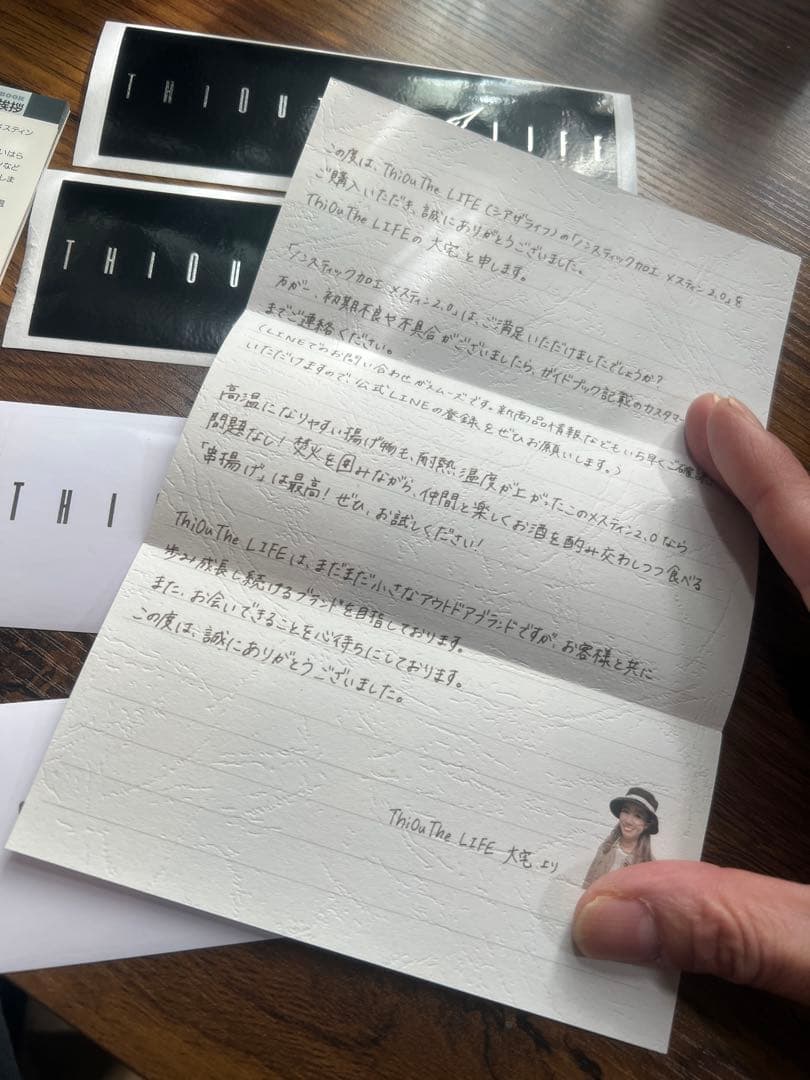 BOOK
挨拶
スティン
いはら
など
しま
THIOU
LIFE
THIOU
THI
この度は、ThiOuThe LIFE(シアザライフ)の「ノンスティック加工 メスティン2.0」を
ご購入いただき、誠にありがとうございました。
ThiOuThe LIFEの大宅と申します。
「ノンスティック加工 メスティン2.0」は、ご満足いただけましたでしょうか?
万が一、初期不良や不具合がございましたら、ガイドブック記載のカスタマー
までご連絡ください。
(LINEでのお問い合わせがスムーズです。新商品情報などもいち早くご確認
いただけますので、公式LINEの登録をぜひお願いします。)
高温になりやすい揚げ物も、耐熱温度が上がったこのメスティン2.0なら
問題なし!焚火を囲みながら、仲間と楽しくお酒を酌み交わしつつ食べる
「串揚げ」は最高!ぜひ、お試しください!
ThiOuThe LIFEは、まだまだ小さなアウトドアブランドですが、お客様と共に
歩み成長し続けるブランドを目指しております。
また、お会いできることを心待ちにしております。
この度は、誠にありがとうございました。
ThiOuThe LIFE 大宅 より